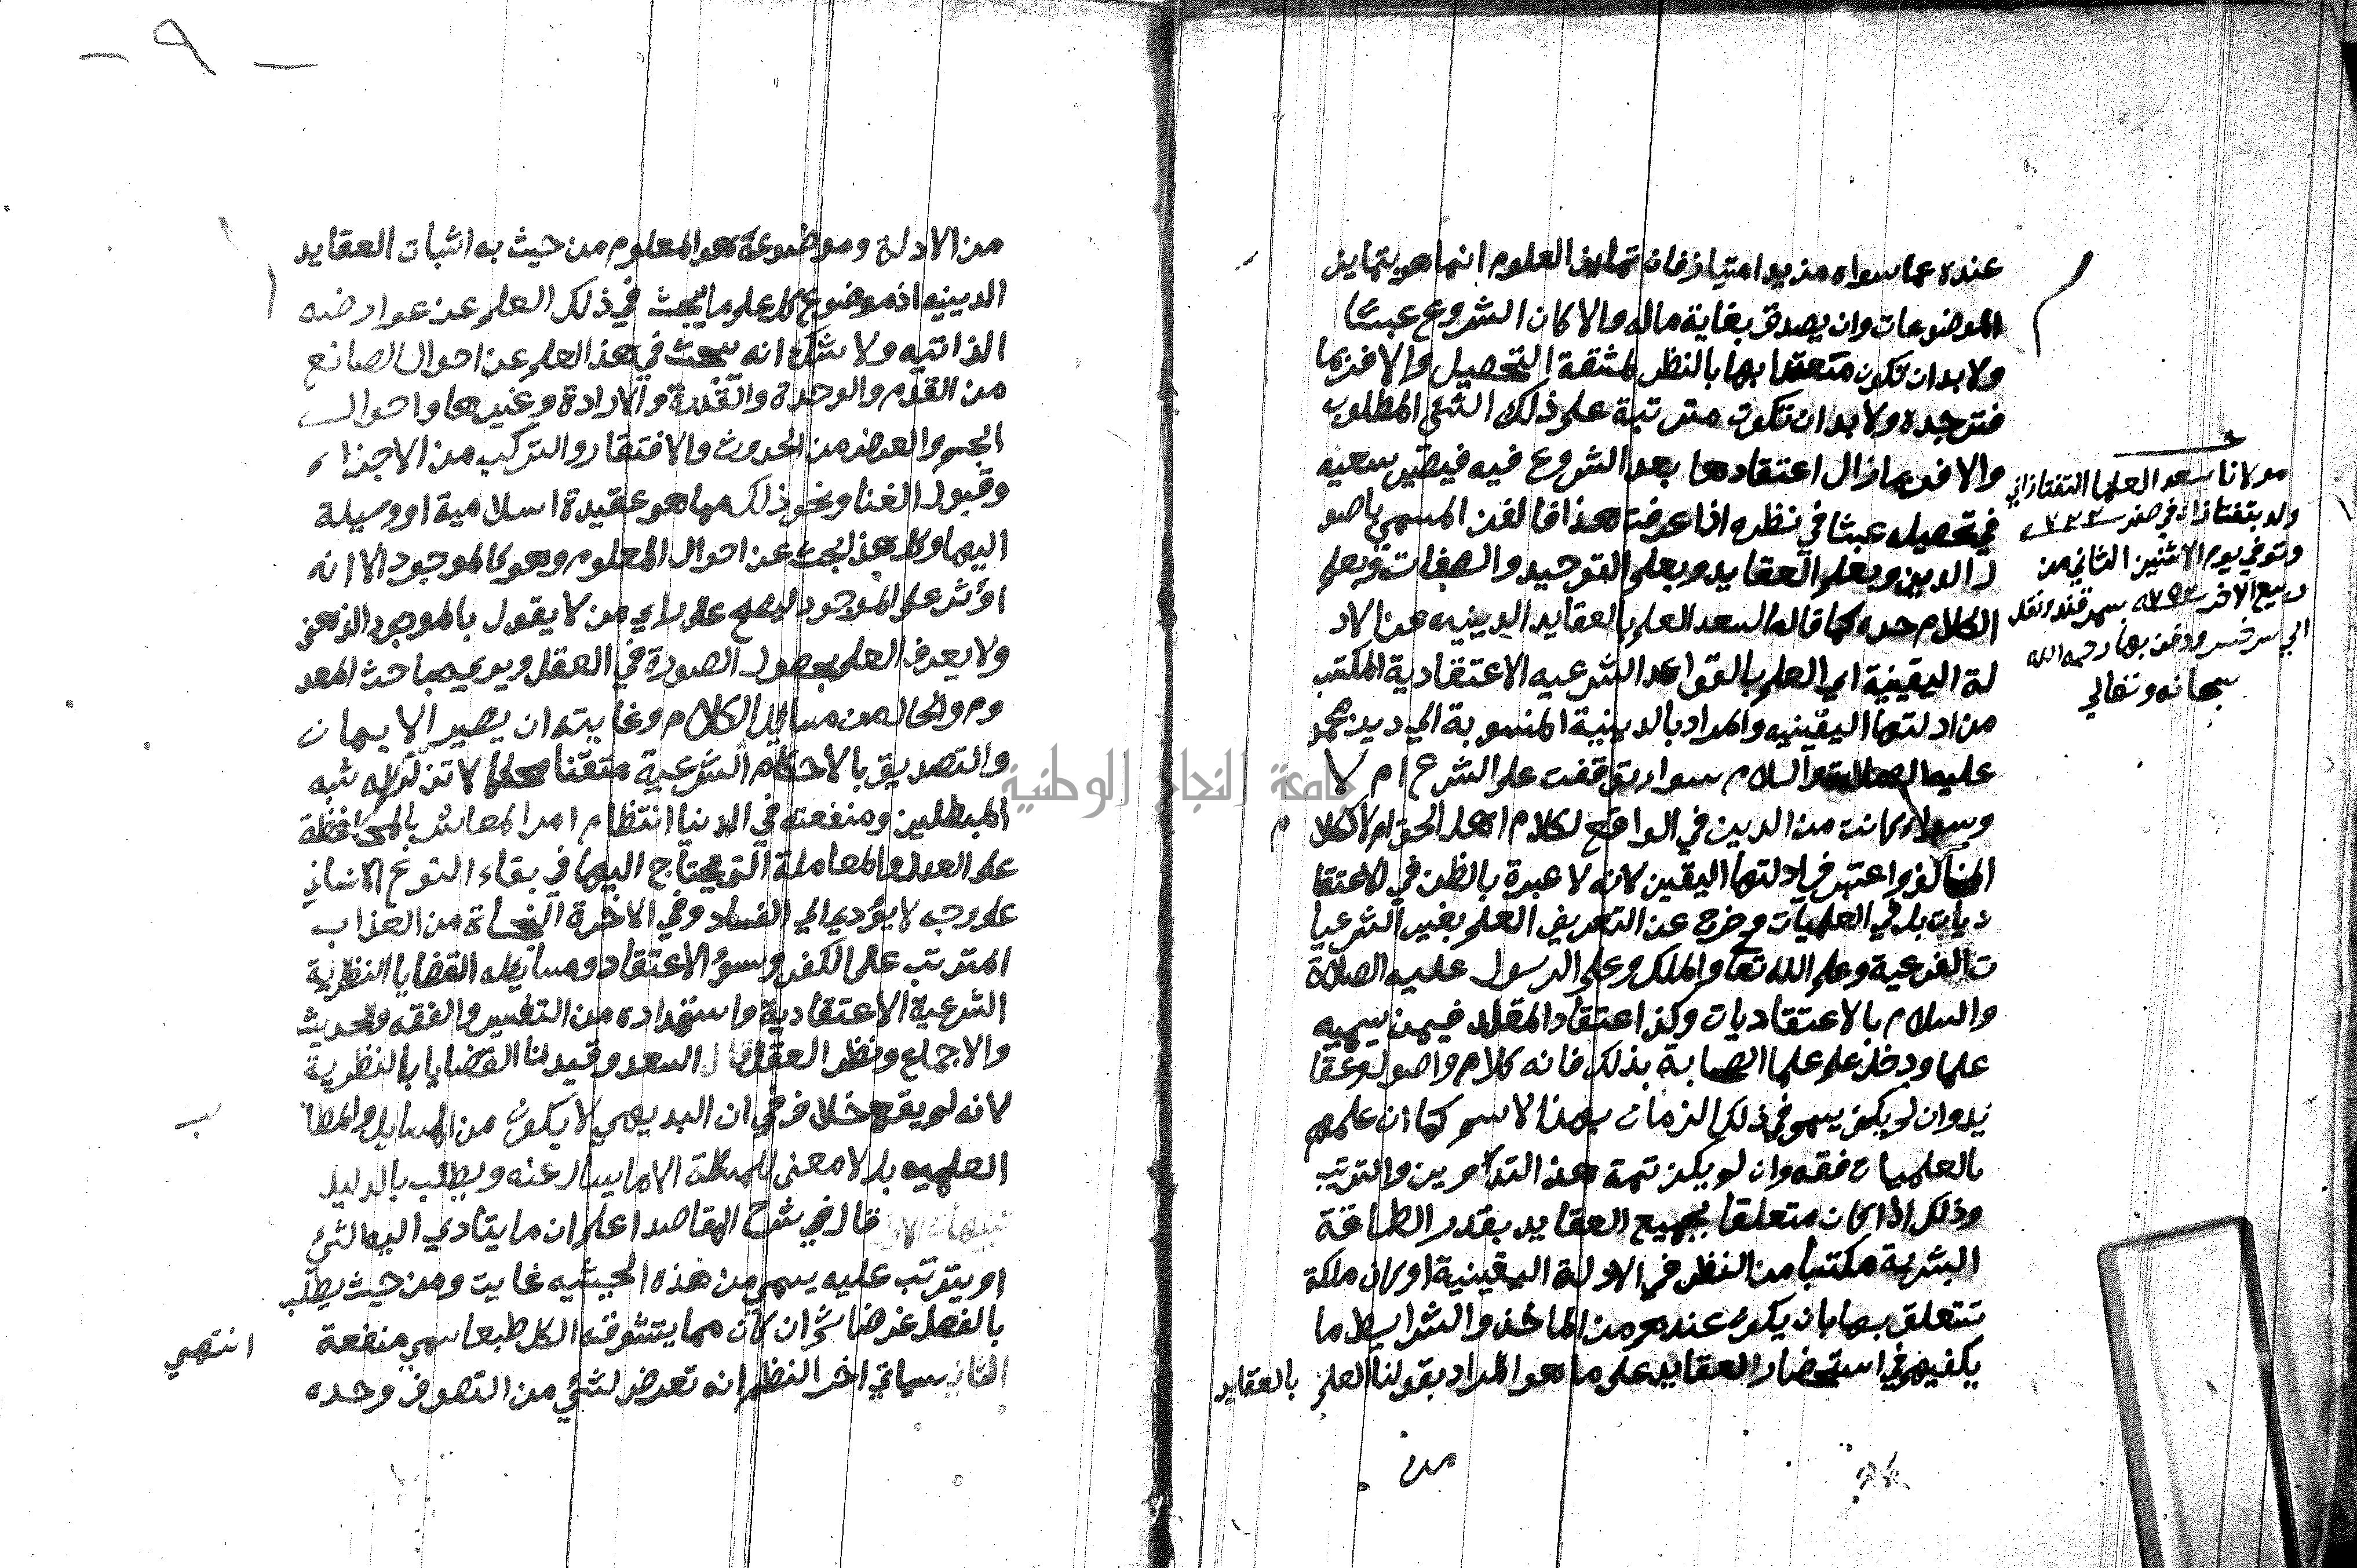 عنده عما سواه مزيد امتياز فان تمايز العلوم انما هو بتمايز
الموضوعات وان يصدق بغاية ما له والا كان الشروع عبثا
ولا بد ان تكون معتدا بها بالنظر لمشقة التحصيل والا فربما
فتر جده ولا بد ان تكون مترتبة على ذلك الشئ المطلوب
والا فربما زال اعتقادها بعد الشروع فيه فيصير سعيه
في تحصيله عبثا في نظره اذا عرفت هذا فالفن المسمي باصو
ل الدين وبعلم العقايد وبعلم التوحيد والصفات وبعلم
الكلام حده كما قاله السعد العلم بالعقايد الدينيه عن الاد
لة اليقينية اي العلم بالقواعد الشرعيه الاعتقادية المكتسب
من ادلتها اليقينيه والمراد بالدينية المنسوبة الي دين محمد
عليه الصلاة والسلام سواء توقفت على الشرع ام لا
وسواء كانت من الدين في الواقع لكلام اهل الحق ام لا ككلا م
المخالف واعتبر في ادلتها اليقين لانه لا عبرة بالظن في الاعتقا
ديات بل في العمليات وخرج عن التعريف العلم بغير الشرعيا
ت الفرعية وعلم الله تعا والملك وعلم الرسول عليه الصلاة
والسلام بالاعتقاديات وكذا اعتقاد المقلد فيمن يسميه
علما ودخل علم علما الصحابة بذلك فانه كلام واصول وعقا
يد وان لم يكن يسمى في ذلك الزمان بهذا الاسم كما ان علمهم
بالعمليات فقه وان لم يكن ثمة هذا التداوين والترتيب
وذلك اذا كان متعلقا بجميع العقايد بقدر الطاقة
البشرية مكتسبا من النظر في الادلة اليقينية او كان ملكة
تتعلق بها بان يكون عندهم من الماخذ والشرايط ما
يكفيهم في استحضار العقايد على ما هو المراد بقولنا العلم بالعقايد
من
مولانا سعد العلما التفتازاني
ولد بتفتازان في صفر
وتوفي يوم الاثنين الثاني من
ربيع الاخر سنة ٧٩٢ بسمرقند ونقل
الي سرخس ودفن بها رحمه الله
سبحانه وتعالي
- ٩ -
من الادلة وموضوعه هو المعلوم من حيث به اثبات العقايد
الدينيه اذ موضوع كل علم ما يبحث في ذلك العلم عن عوارضه
الذاتيه ولا شك انه يبحث في هذا العلم عن احوال الصانع
من القدم والوحدة والقدرة والارادة وغيرها واحوال
الجسم والعرض من الحدوث والافتقار والتركب من الاجزاء
وقبول الفنا ونحو ذلك مما هو عقيدة اسلامية او وسيلة
اليها وكل هذا بحث عن احوال المعلوم وهو كالموجود الا انه
اؤثر على الموجود ليصح على راي من لا يقول بالموجود الذهني
ولا يعرف العلم بحصول الصورة في العقل ويرى مباحث المعد
وم والحال من مسايل الكلام وغايته ان يصير الايمان
والتصديق بالاحكام الشرعية متقنا محكما لا تزلزله شبه
المبطلين ومنفعته في الدنيا انتظام امر المعاش بالمحافظة
على العدل والمعاملة التي يحتاج اليها في بقاء النوع الانساني
على وجه لا يؤدي الي الفساد وفي الاخرة النجاة من العذاب
المترتب على الكفر وسوء الاعتقاد ومسايله القضايا النظرية
الشرعية الاعتقادية واستمداده من التفسير والفقه والحديث
والاجماع ونظر العقل قال السعد وقيدنا القضايا بالنظرية
لانه لم يقع خلاف في ان البديهي لا يكون من المسايل والمطا لب
العلميه بل لا معنى للمسئلة الا ما يسال عنه ويطلب بالدليل
تنبيهات الاول قال في شرح المقاصد اعلم ان ما يتادي اليه الشئ
او يترتب عليه يسمى من هذه الحيثيه غايت ومن حيث يطلب
بالفعل غرضا ثم ان كان مما يتشوقه الكل طبعا سمي منفعة انتهي
الثاني سياتي اخر النظم انه تعرض لشئ من التصوف وحده
جامعة النجاح الوطنية